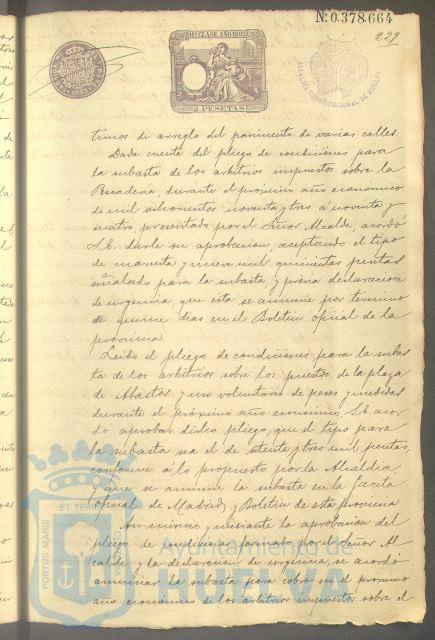 Nº 0.378.664
229
11ª CLASE. AÑO 1893
2 PESETAS
ALCALDÍA CONSTITUCIONAL DE HUELVA
timos de arreglo del pavimento de varias calles.
Dada cuenta del pliego de condiciones para
la subasta de los arbitrios impuestos sobre la
Pescadería, durante el próximo año económico
de mil ochocientos noventa y tres á noventa y
cuatro, presentado por el Señor Alcalde, acordó
S.E. darle su aprobacion, aceptando el tipo
de cuarenta y nueve mil quinientas pesetas
señalado para la subasta y previa declaracion
de urgencia, que esta se anuncie por termino
de quince dias en el Boletin oficial de la
provincia
Leido el pliego de condiciones para la subas
ta de los arbitrios sobre los puestos de la plaza
de Abastos y uso voluntario de pesos y medidas
durante el próximo año economico, S.E. acor
dó aprobar dicho pliego, que el tipo para
la subasta sea el de setenta y tres mil pesetas,
conforme á lo propuesto por la Alcaldia,
y que se anuncie la subasta en la Gaceta
oficial de Madrid y Boletin de esta provincia
Asi mismo y mediante la aprobacion del
pliego de condiciones formado por el Señor Al
calde y la declaracion de urgencia, se acordó
anunciar la subasta para cobro en el próximo
año económico de los arbitrios impuestos sobre el
PORTUS MARIS ET TERRÆ CUSTODIA
Ayuntamiento de
HUELVA